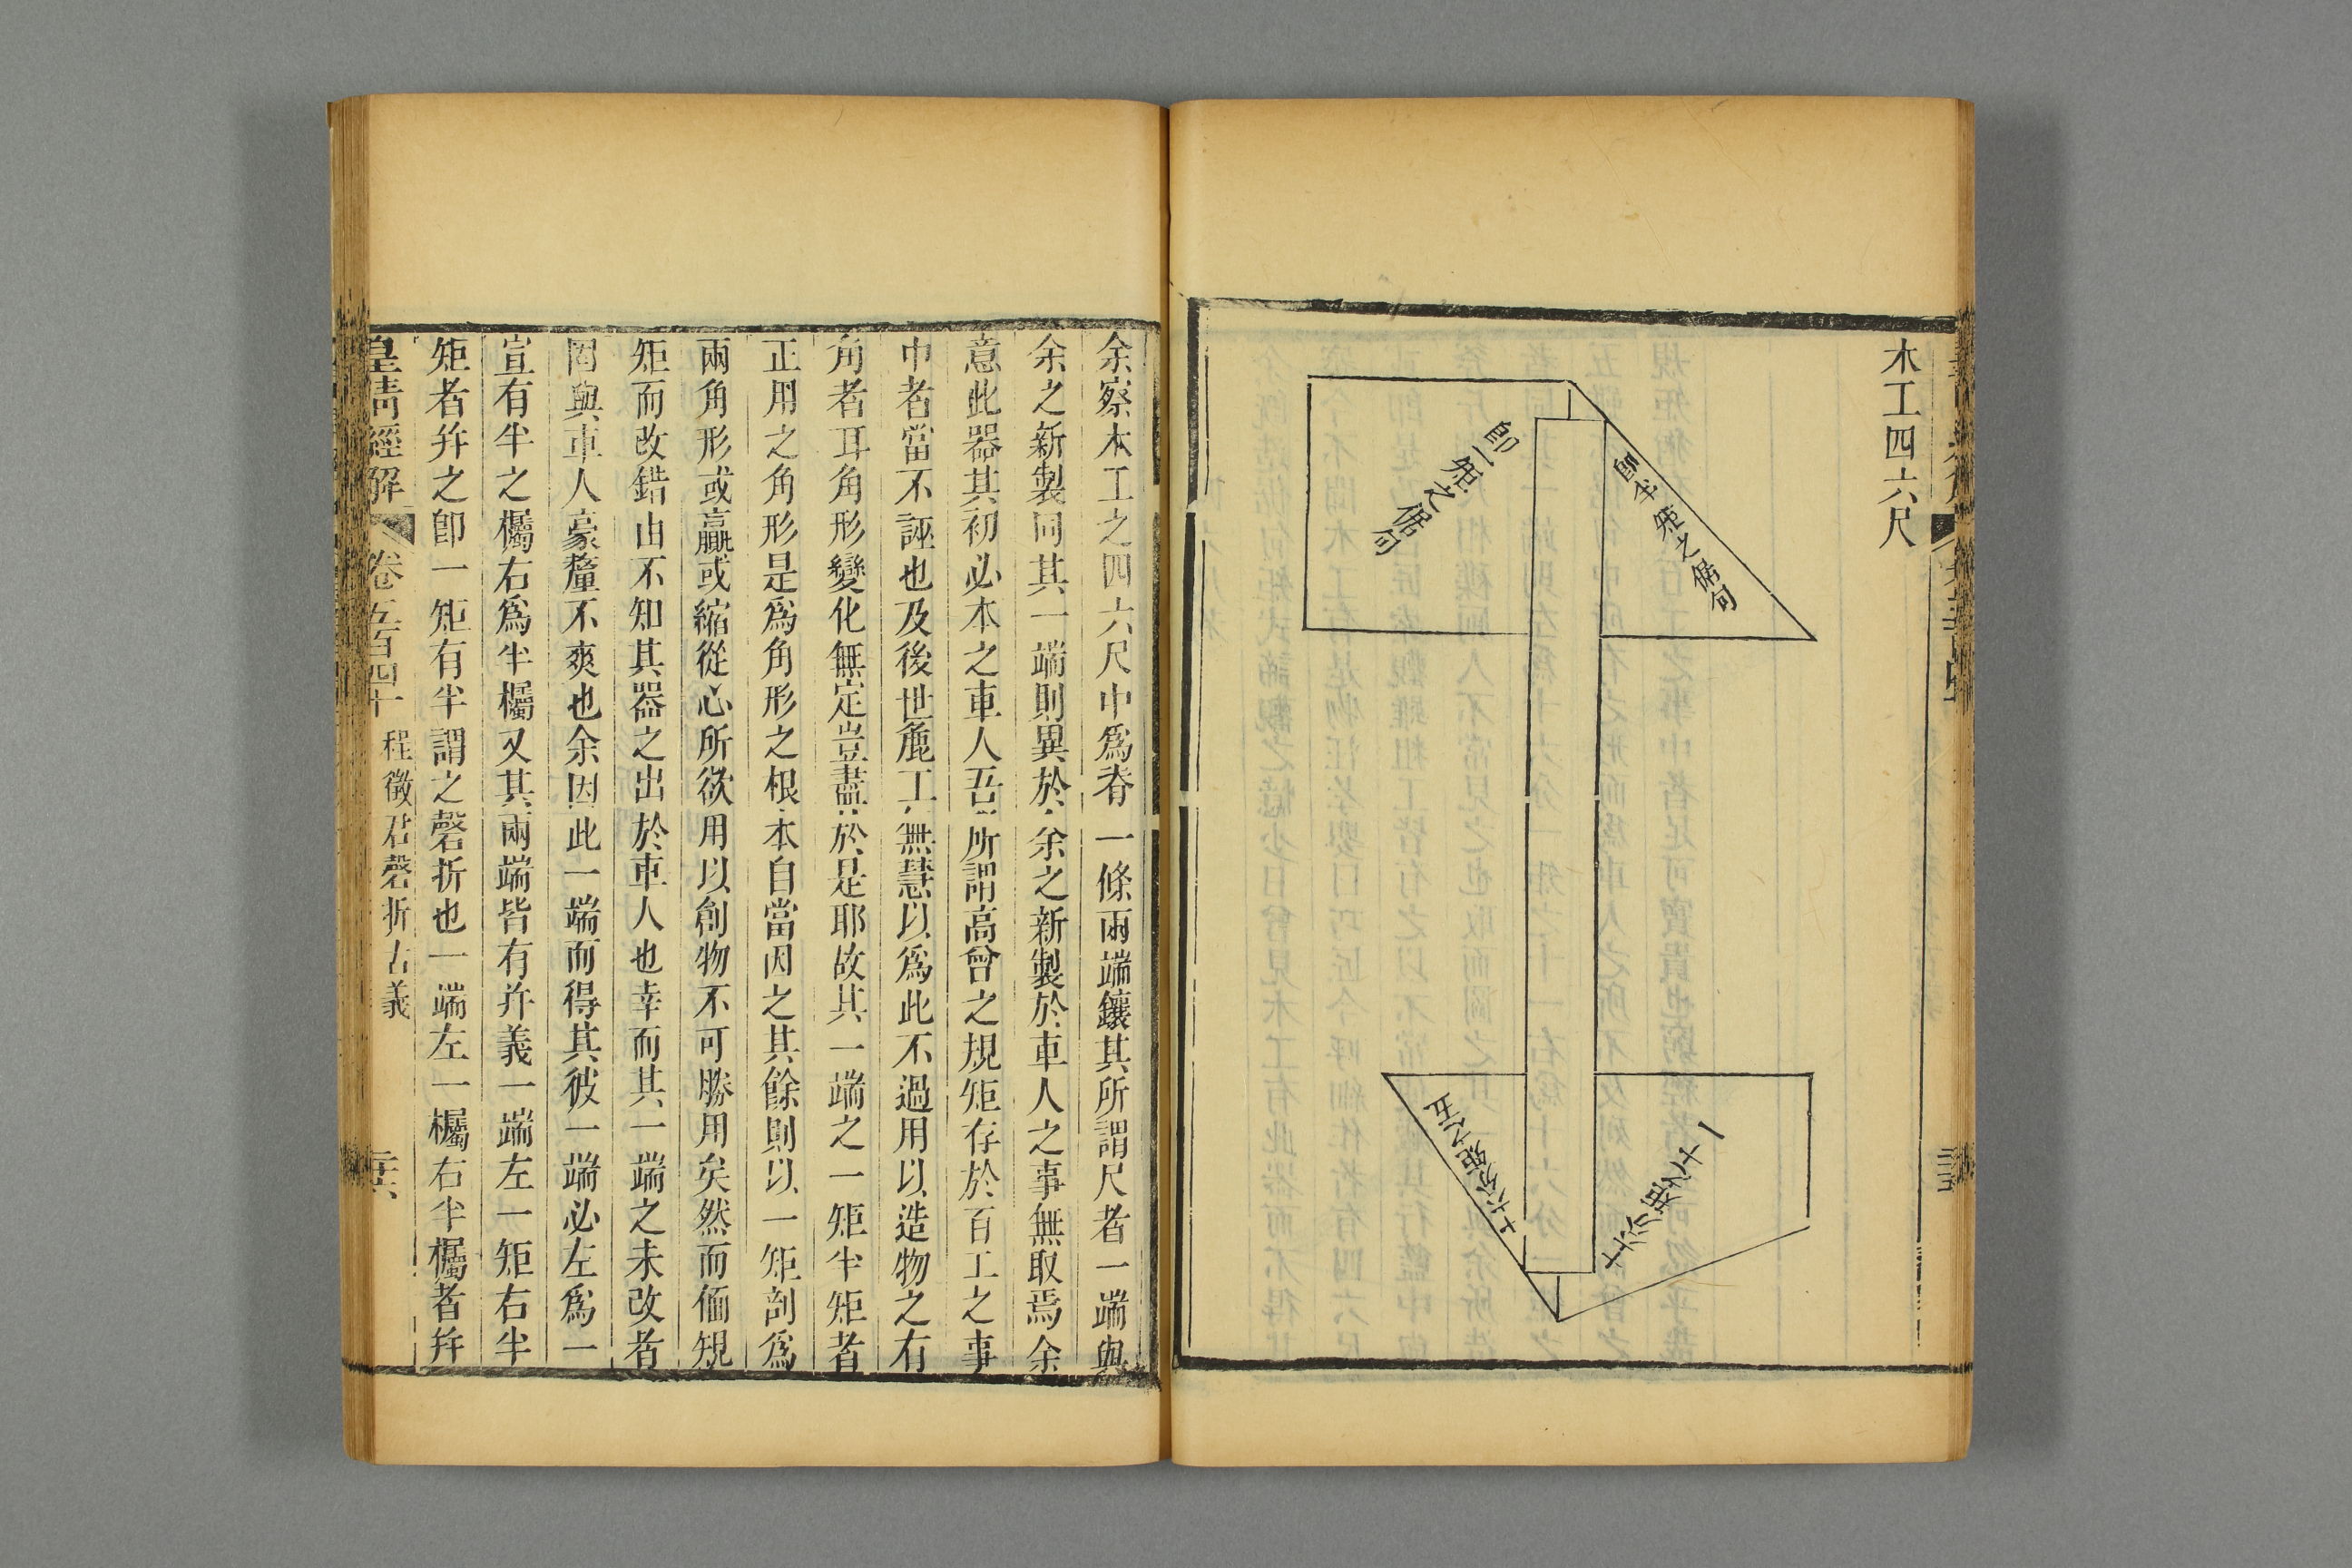 木工四六尺
卽一矩之倨句
卽半矩之倨句
十六分矩之五
十六分矩之十一
余察木工之四六尺中爲脊一條兩端鑲其所謂尺者一端與
余之新製同其一端則異於余之新製於車人之事無取焉余
意此器其初必本之車人吾所謂高曾之規矩存於百工之事
中者當不誣也及後世麄工無慧以爲此不過用以造物之有
角者耳角形變化無定豈盡於是耶故其一端之一矩半矩者
正用之角形是爲角形之根本自當因之其餘則以一矩剖爲
兩角形或贏或縮從心所欲用以創物不可勝用矣然而偭規
矩而改錯由不知其器之出於車人也幸而其一端之未改者
固與車人豪釐不爽也余因此一端而得其彼一端必左爲一
宣有半之欘右爲半欘又其兩端皆有幷義一端左一矩右半
矩者幷之卽一矩有半謂之磬折也一端左一欘右半欘者幷
皇淸經解 卷五百四十 程徵君磬折古義